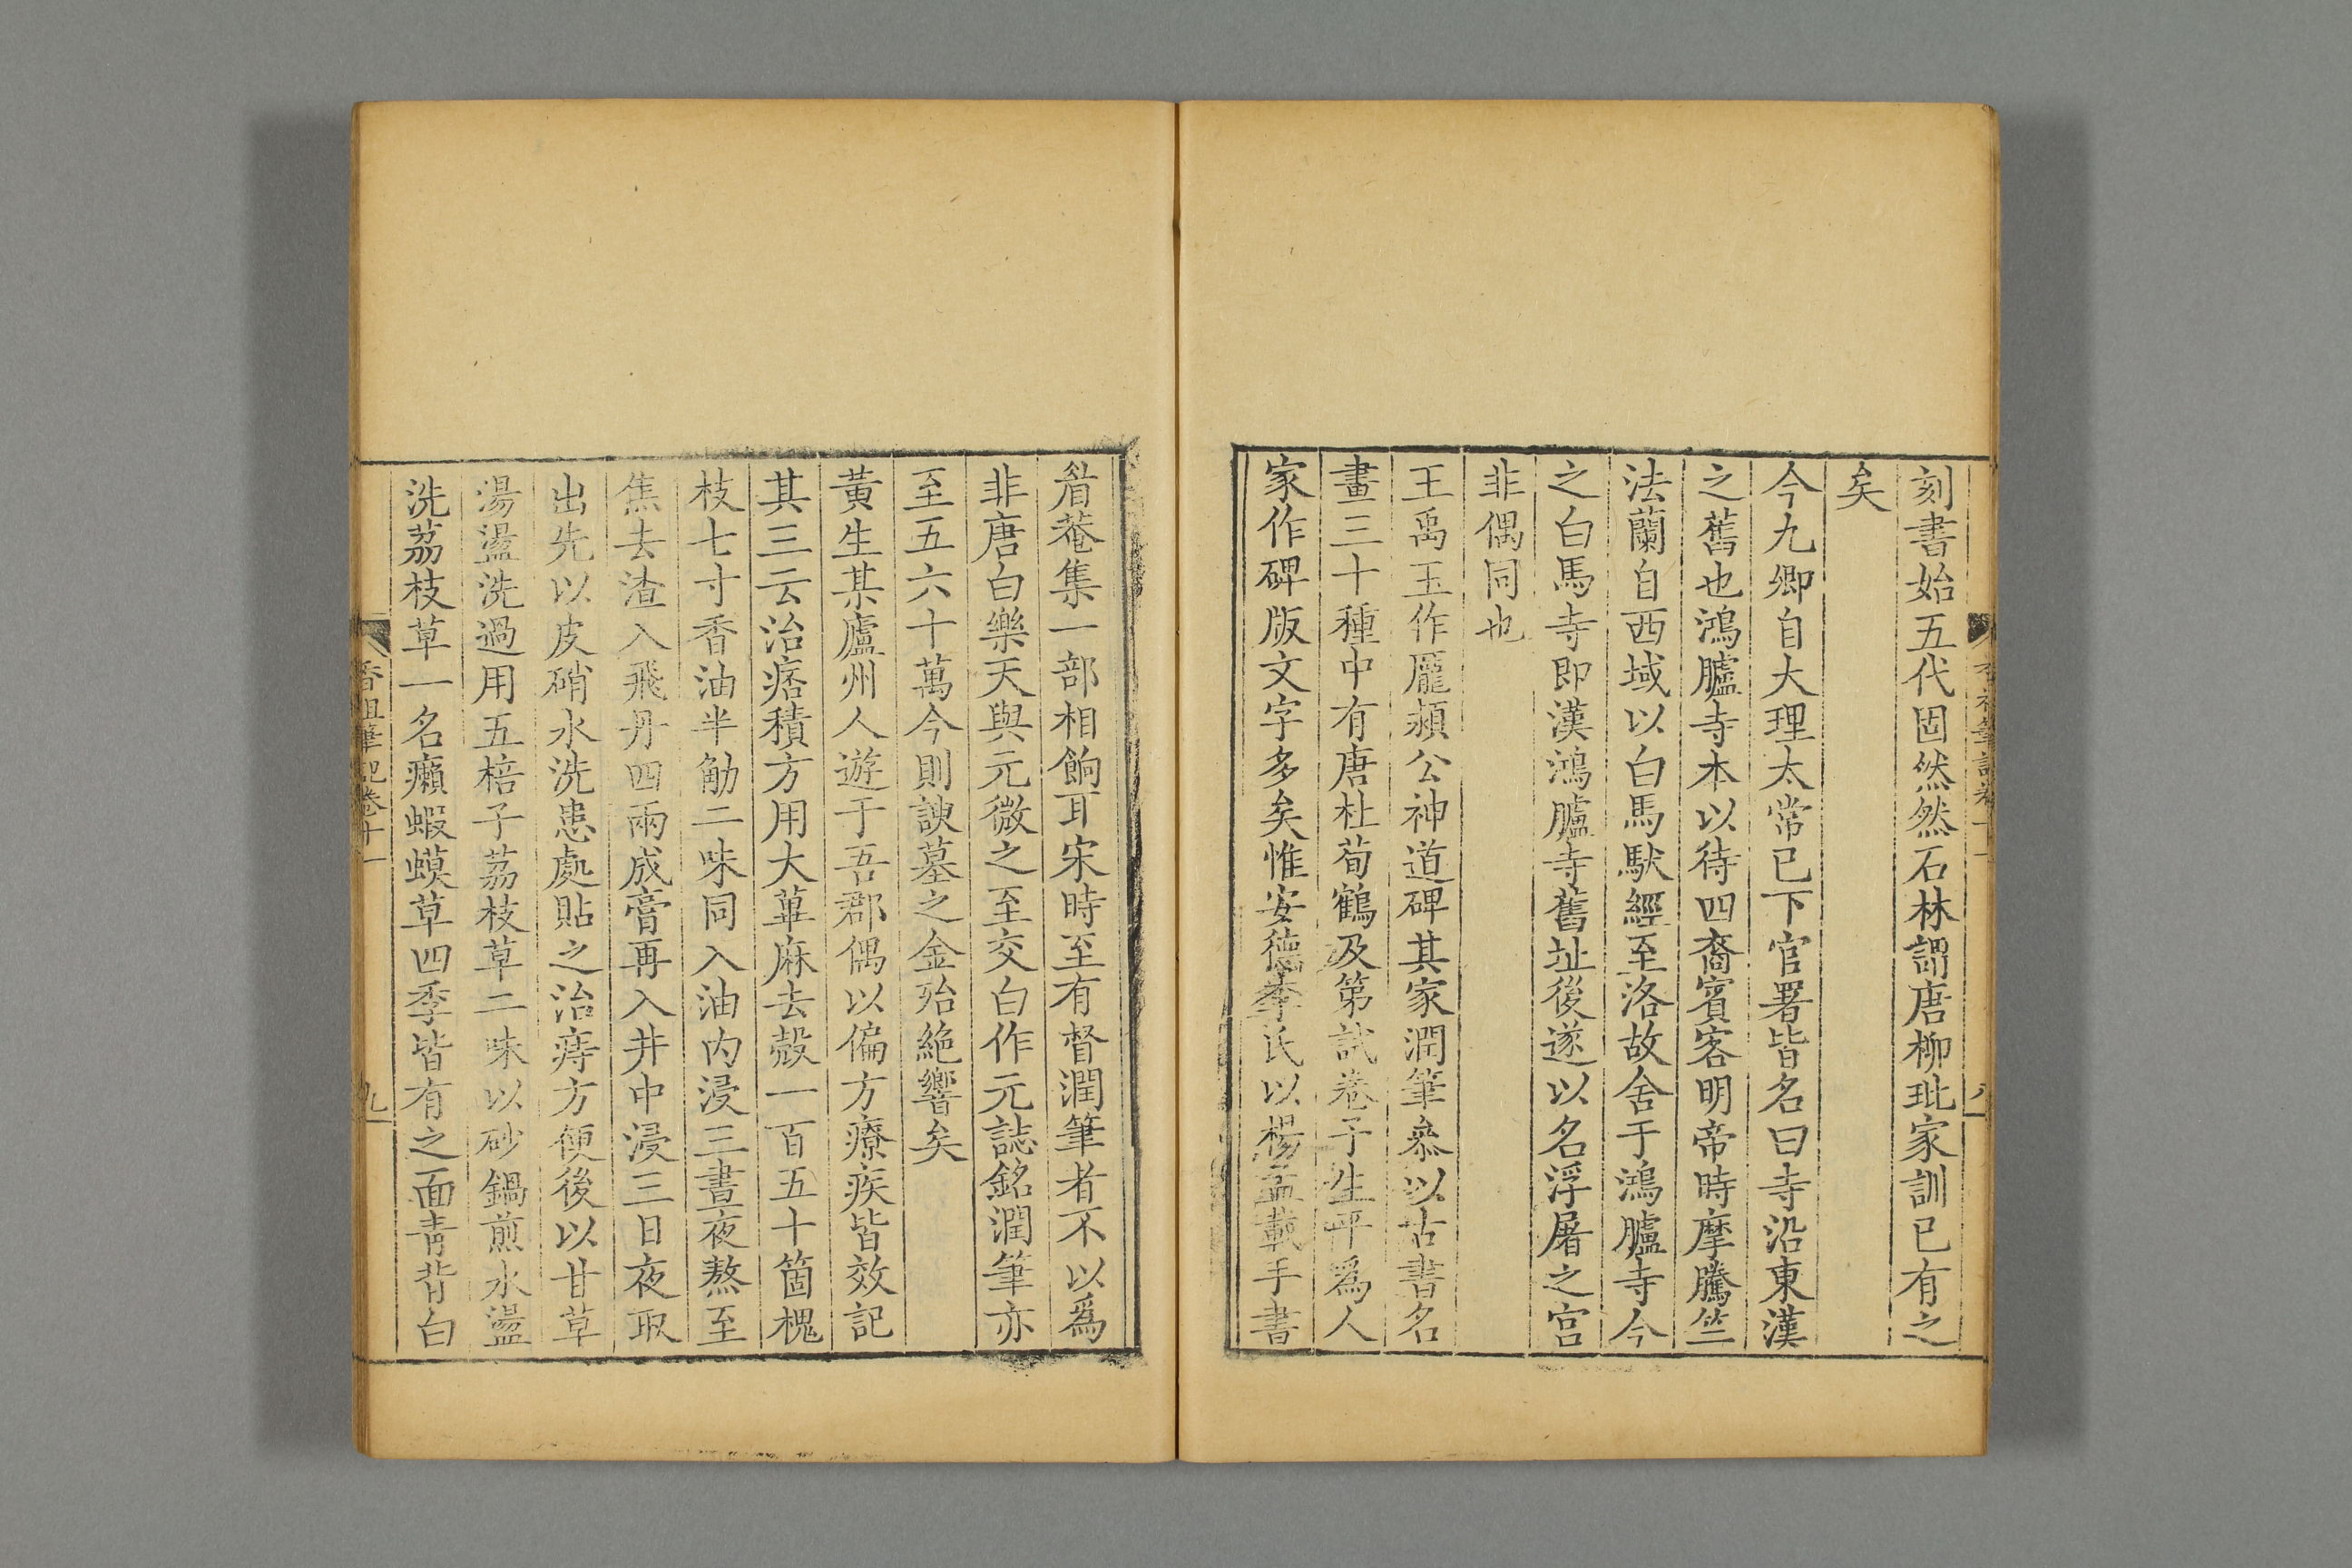 刻書始五代固然然石林謂唐柳玭家訓已有之
矣
今九卿自大理太常已下官署皆名曰寺沿東漢
之舊也鴻臚寺本以待四裔賓客明帝時摩騰竺
法蘭自西域以白馬馱經至洛故舍于鴻臚寺今
之白馬寺即漢鴻臚寺舊址後遂以名浮屠之宫
非偶同也
王禹玉作龎潁公神道碑其家潤筆叅以古書名
畫三十種中有唐杜荀鶴及第試卷子生平爲人
家作碑版文字多矣惟安德李氏以楊孟載手書
眉菴集一部相餉耳宋時至有督潤筆者不以爲
非唐白樂天與元微之至交白作元誌銘潤筆亦
至五六十萬今則諛墓之金殆絶響矣
黃生某廬州人遊于吾郡偶以偏方療疾皆效記
其三云治痞積方用大萆麻去殼一百五十箇槐
枝七寸香油半觔二味同入油内浸三晝夜熬至
焦去渣入飛丹四兩成膏再入井中浸三日夜取
出先以皮硝水洗患處貼之治痔方便後以甘草
湯盪洗過用五棓子荔枝草二味以砂鍋煎水盪
洗荔枝草一名癩蝦蟆草四季皆有之面靑背白
香祖筆記卷十一
九